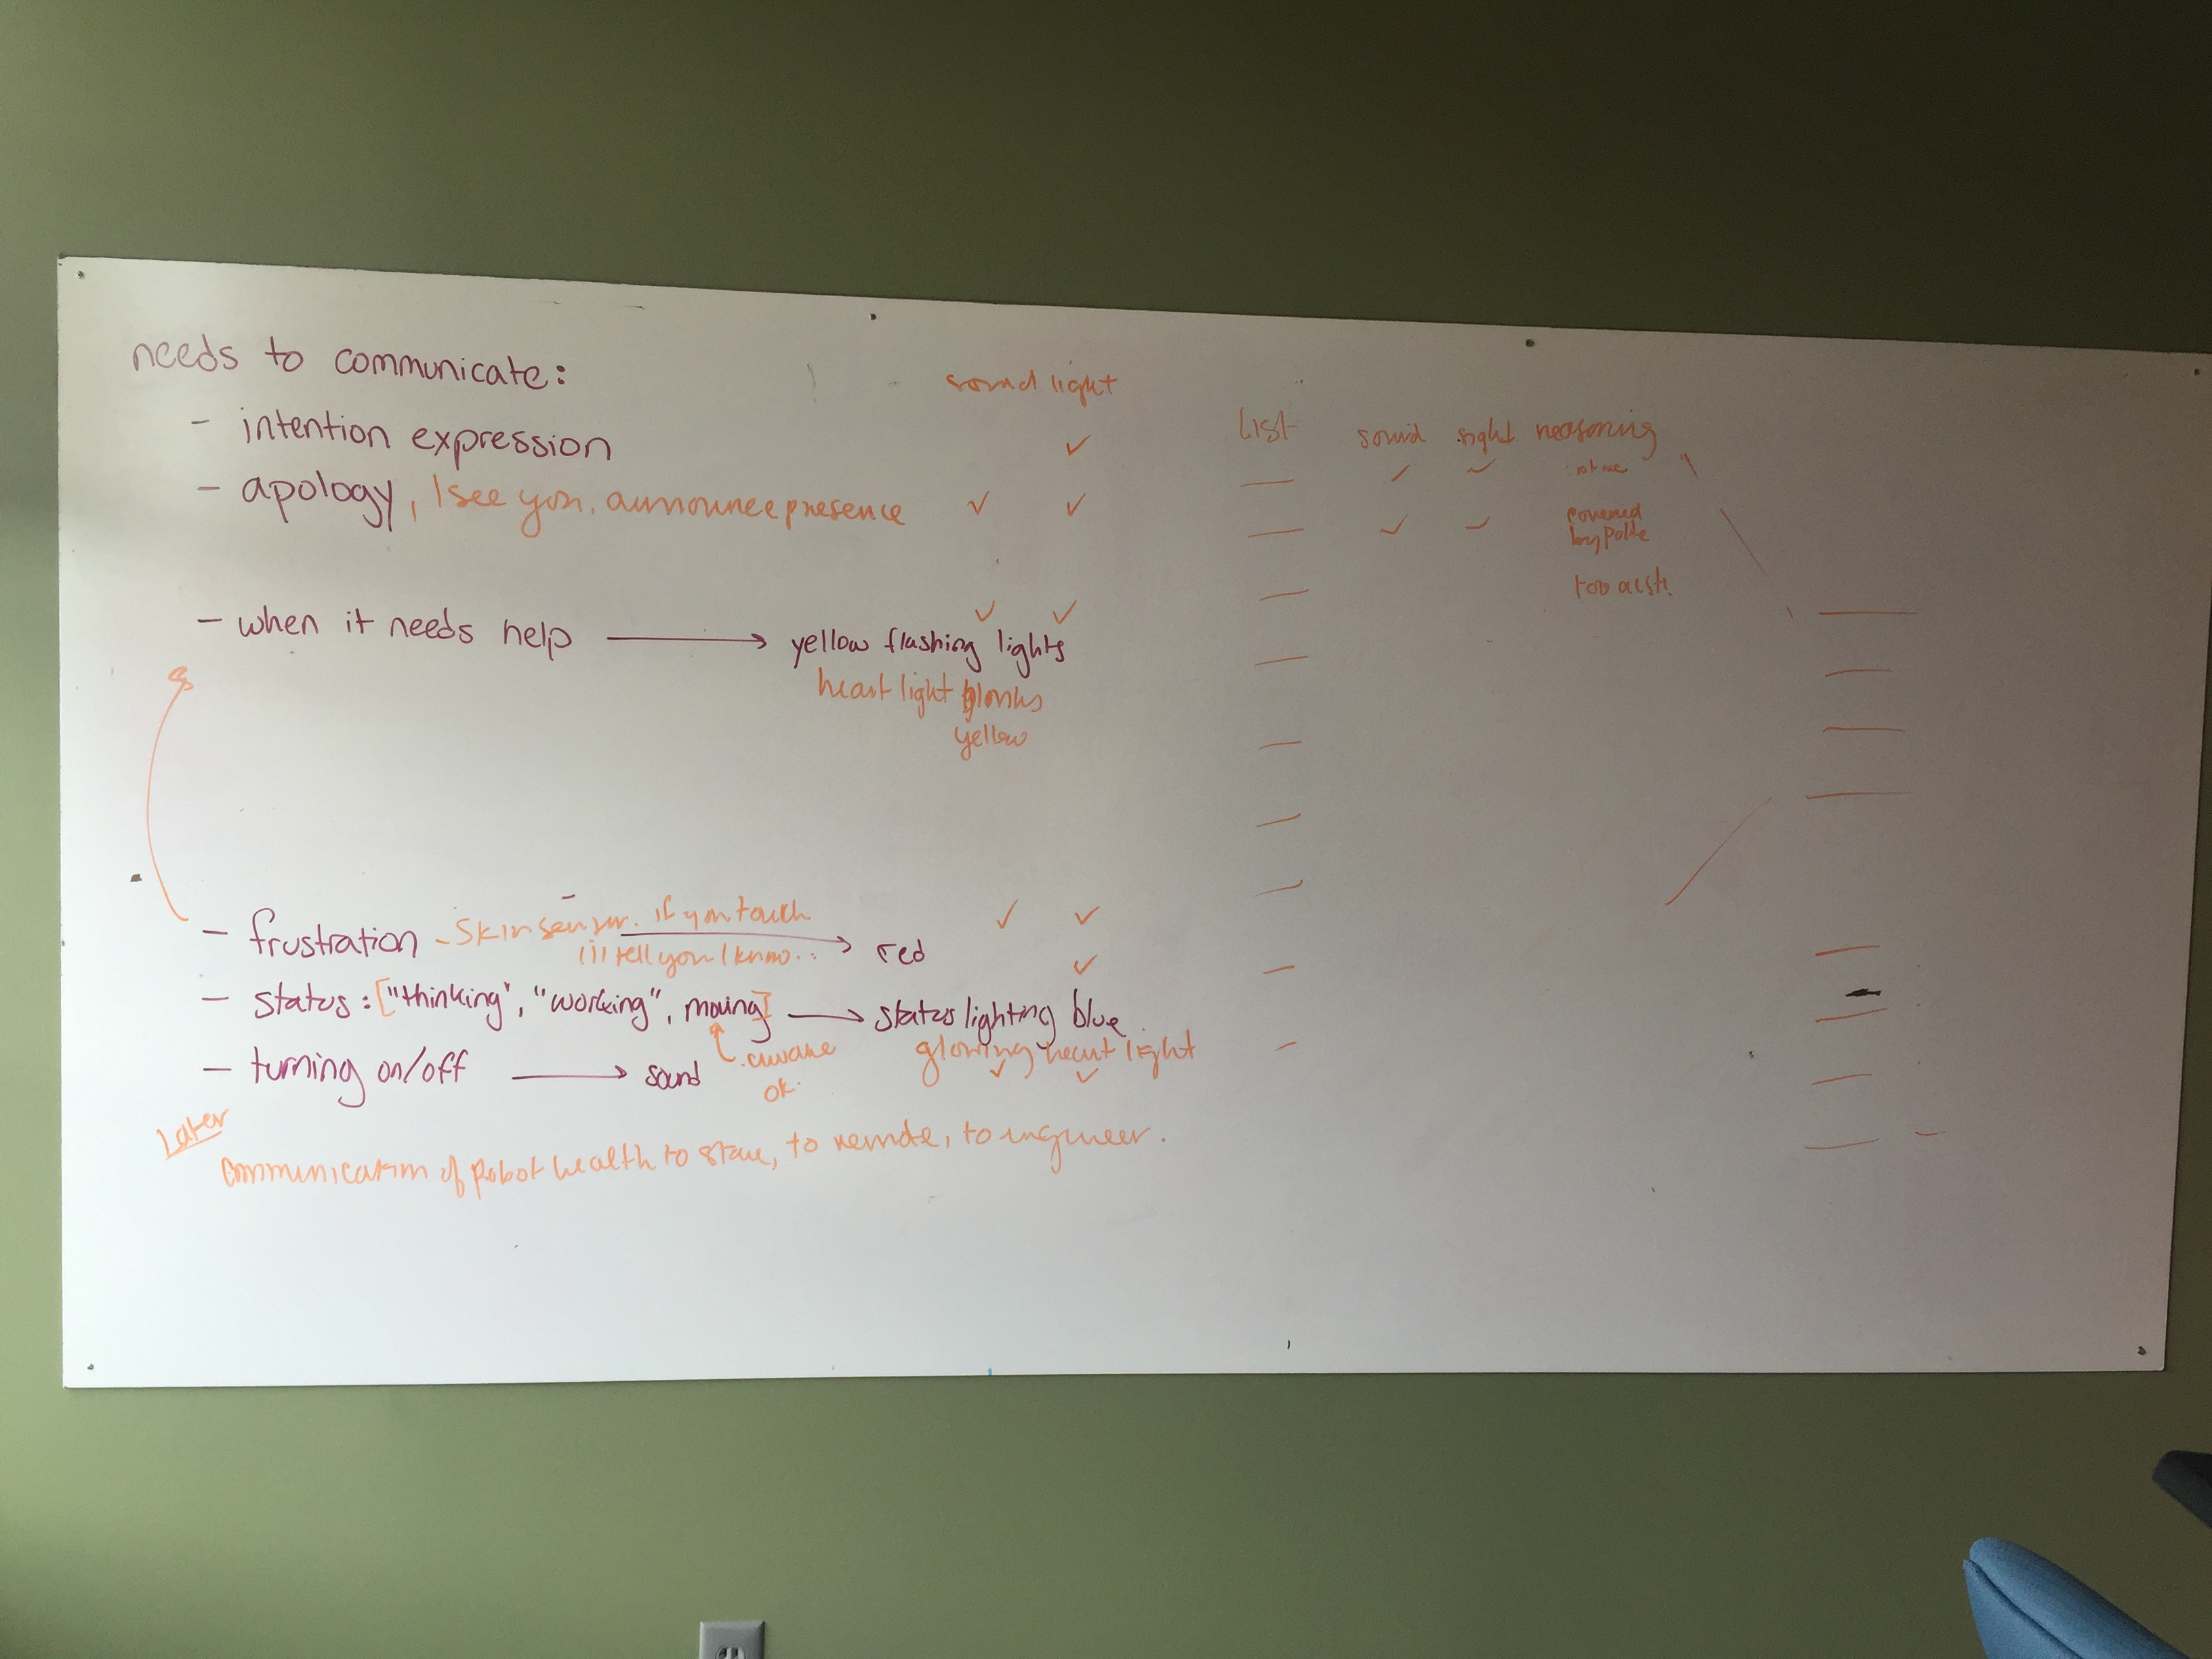 needs to communicate:
sound light
- intention expression ✓
- apology, I see you, announce presence ✓ ✓
- when it needs help → yellow flashing lights ✓ ✓
heart light blinks
yellow
- frustration - skin sensor. if you touch
i'll tell you I know.. → red ✓ ✓
- status: ["thinking", "working", moving] → status lighting blue ✓
aware
ok.
glowing heart light
- turning on/off → sound ✓ ✓
Later
communication of robot health to store, to remote, to engineer.
list sound sight reasoning
✓ ✓
✓ ✓ powered
by
too